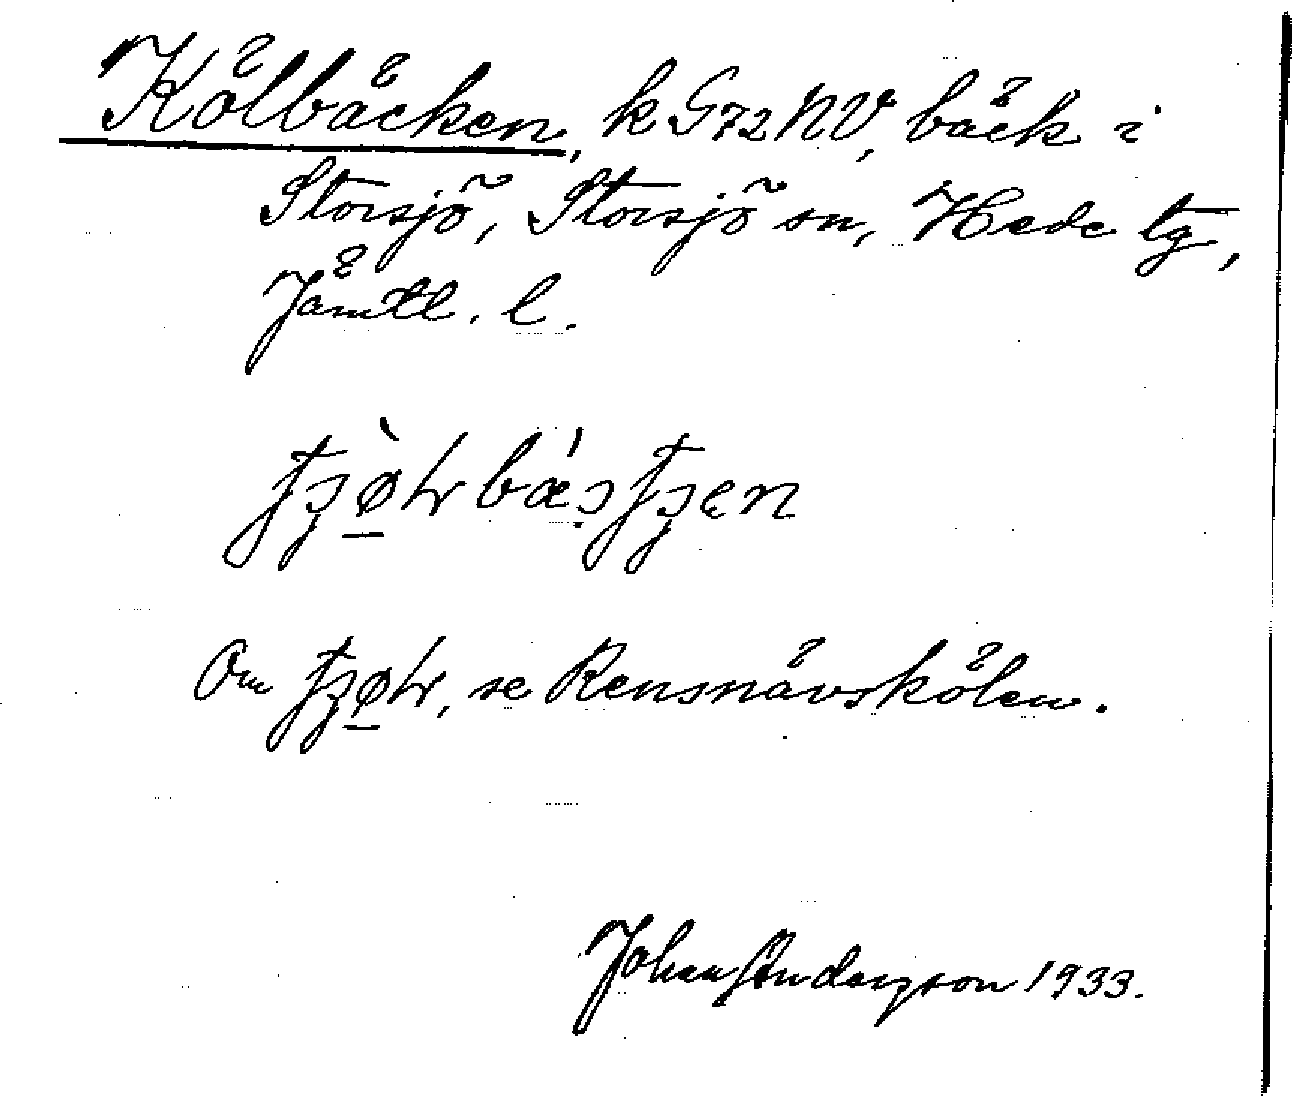 Kölbäcken, k G72 NV, bäck i
Storsjö, Storsjö sn, Hede tg,
Jämtl. l.
Om, se Rensnävskölen.
Johan Anderzson 1933.